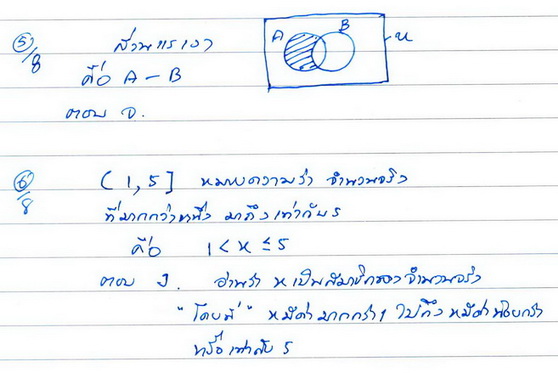 5/8 ส่วนแรเงา
A B u
คือ A - B
ตอบ จ.
6/8 (1, 5] หมายความว่า จำนวนจริง
ที่มากกว่าหนึ่ง มาถึงเท่ากับ 5
คือ 1 < x ≤ 5
ตอบ ง. อ่านว่า x เป็นสมาชิกของจำนวนจริง
"โดยที่" x มีค่ามากกว่า 1 ไปถึง x มีค่าน้อยกว่า
หรือเท่ากับ 5